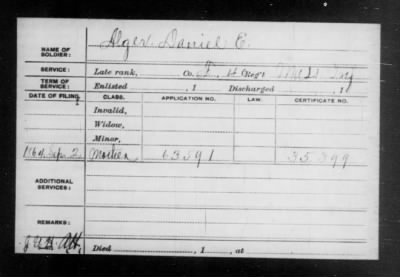 Alger, Daniel E.
NAME OF
SOLDIER:
SERVICE:
Late rank, Co. 4 Reg't Inf
TERM OF
SERVICE:
Enlisted , 1 Discharged , 1
DATE OF FILING.
CLASS.
APPLICATION NO.
LAW.
CERTIFICATE NO.
Invalid,
Widow,
Minor,
Mother 63591 35399
ADDITIONAL
SERVICES:
REMARKS:
Died , 1 , at